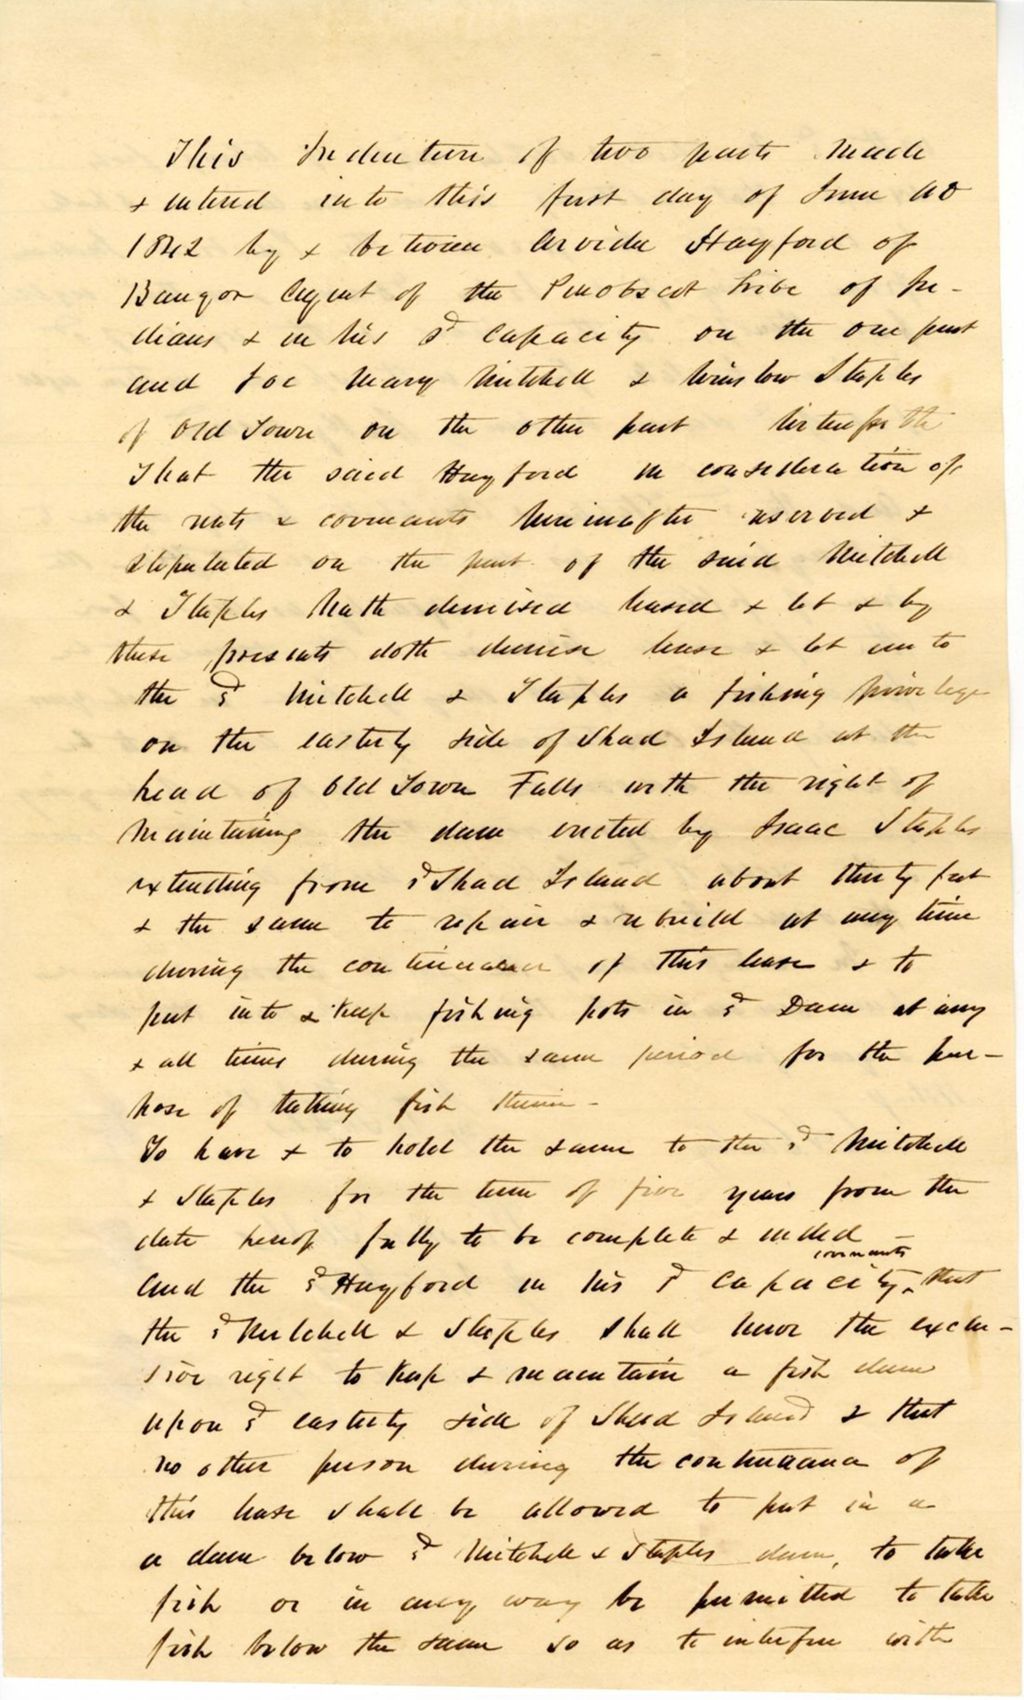 This Indenture of two parts made
& entered into this first day of June AD
1842 by & between Arvida Hayford of
Bangor Agent of the Penobscot Tribe of In-
dians & in his sd capacity on the one part
and Joe Mary Mitchell & Winslow Staples
of Old Town on the other part
That the said Hayford in consideration of
the rents & covenants hereinafter reserved &
stipulated on the part of the said Mitchell
& Staples hath demised leased & let & by
these presents doth demise lease & let unto
the sd Mitchell & Staples a fishing privilege
on the easterly side of Shad Island at the
head of Old Town Falls with the right of
maintaining the dam erected by Isaac Staples
extending from sd Shad Island about thirty feet
& the same to repair & rebuild at any time
during the continuance of this lease & to
put into & keep fishing pots in sd Dam at any
& all times during the same period for the pur-
pose of taking fish therein -
To have & to hold the same to the sd Mitchell
& Staples for the term of five years from the
date hereof fully to be complete & ended -
And the sd Hayford in his sd capacity covenants that
the sd Mitchell & Staples shall have the exclu-
sive right to keep & maintain a fish dam
upon sd easterly side of Shad Island & that
no other person during the continuance of
this lease shall be allowed to put in a
a dam below sd Mitchell & Staples dam, to take
fish or in any way be permitted to take
fish below the same so as to interfere with